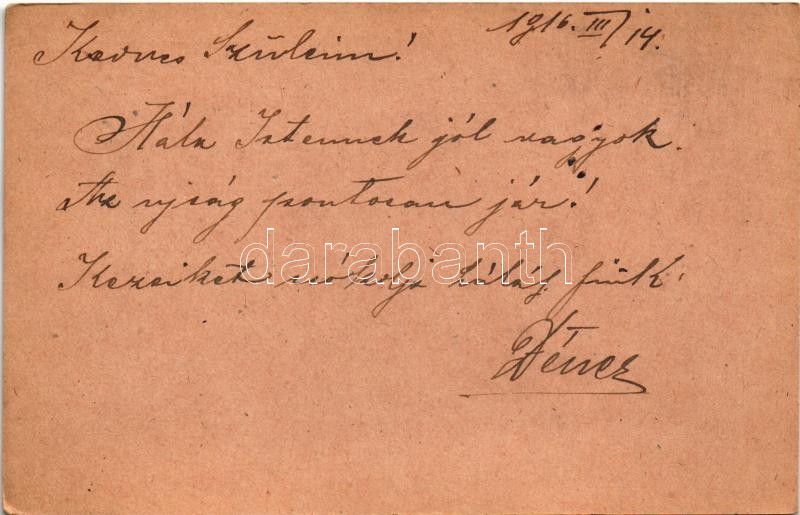 1916. III/14.
Kedves Szüleim!
Hála Istennek jól vagyok.
Az ujság pontosan jár!
Kezeiket csókolja hálás fiuk
Dénes
darabanth